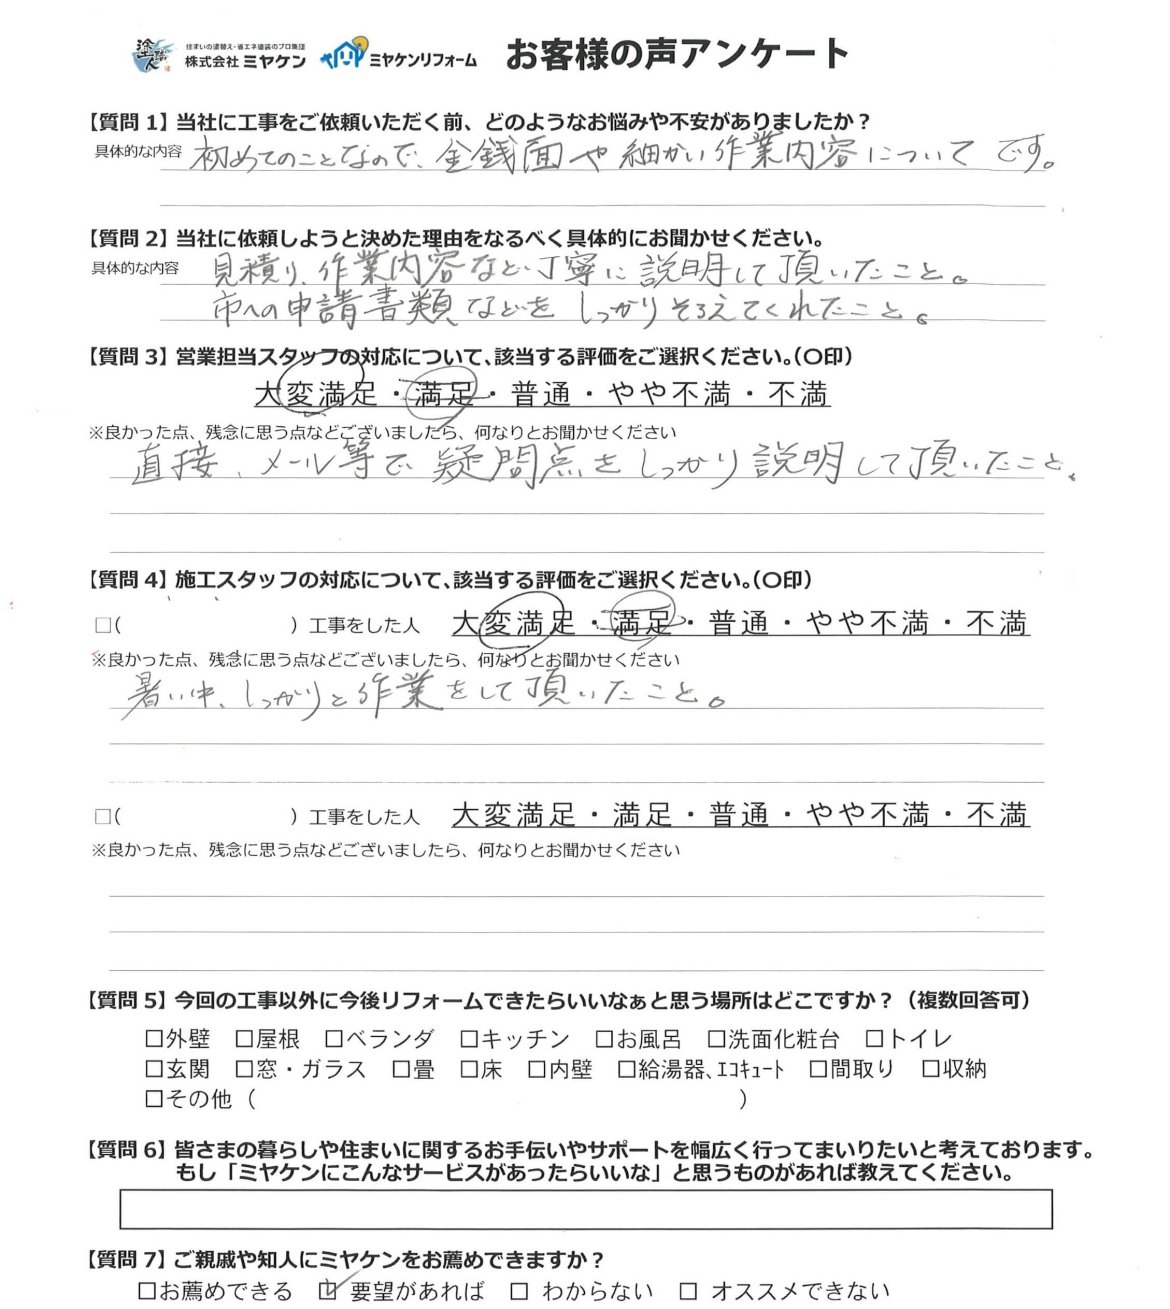 住まいの塗替え・省エネ塗装のプロ集団
株式会社 ミヤケン ミヤケンリフォーム お客様の声アンケート
【質問 1】当社に工事をご依頼いただく前、どのようなお悩みや不安がありましたか？
具体的な内容 初めてのことなので、金銭面や細かい作業内容についてです。
【質問 2】当社に依頼しようと決めた理由をなるべく具体的にお聞かせください。
具体的な内容 見積り、作業内容など、丁寧に説明して頂いたこと。
市への申請書類などをしっかりそろえてくれたこと。
【質問 3】営業担当スタッフの対応について、該当する評価をご選択ください。（〇印）
大変満足・満足・普通・やや不満・不満
※良かった点、残念に思う点などございましたら、何なりとお聞かせください
直接、メール等で疑問点をしっかり説明して頂いたこと、
【質問 4】施工スタッフの対応について、該当する評価をご選択ください。（〇印）
□（ ）工事をした人 大変満足・満足・普通・やや不満・不満
※良かった点、残念に思う点などございましたら、何なりとお聞かせください
暑い中、しっかりと作業をして頂いたこと。
□（ ）工事をした人 大変満足・満足・普通・やや不満・不満
※良かった点、残念に思う点などございましたら、何なりとお聞かせください
【質問 5】今回の工事以外に今後リフォームできたらいいなぁと思う場所はどこですか？（複数回答可）
□外壁 □屋根 □ベランダ □キッチン □お風呂 □洗面化粧台 □トイレ
□玄関 □窓・ガラス □畳 □床 □内壁 □給湯器、ｴｺｷｭｰﾄ □間取り □収納
□その他（ ）
【質問 6】皆さまの暮らしや住まいに関するお手伝いやサポートを幅広く行ってまいりたいと考えております。
もし「ミヤケンにこんなサービスがあったらいいな」と思うものがあれば教えてください。
【質問 7】ご親戚や知人にミヤケンをお薦めできますか？
□お薦めできる ☑ 要望があれば □ わからない □ オススメできない